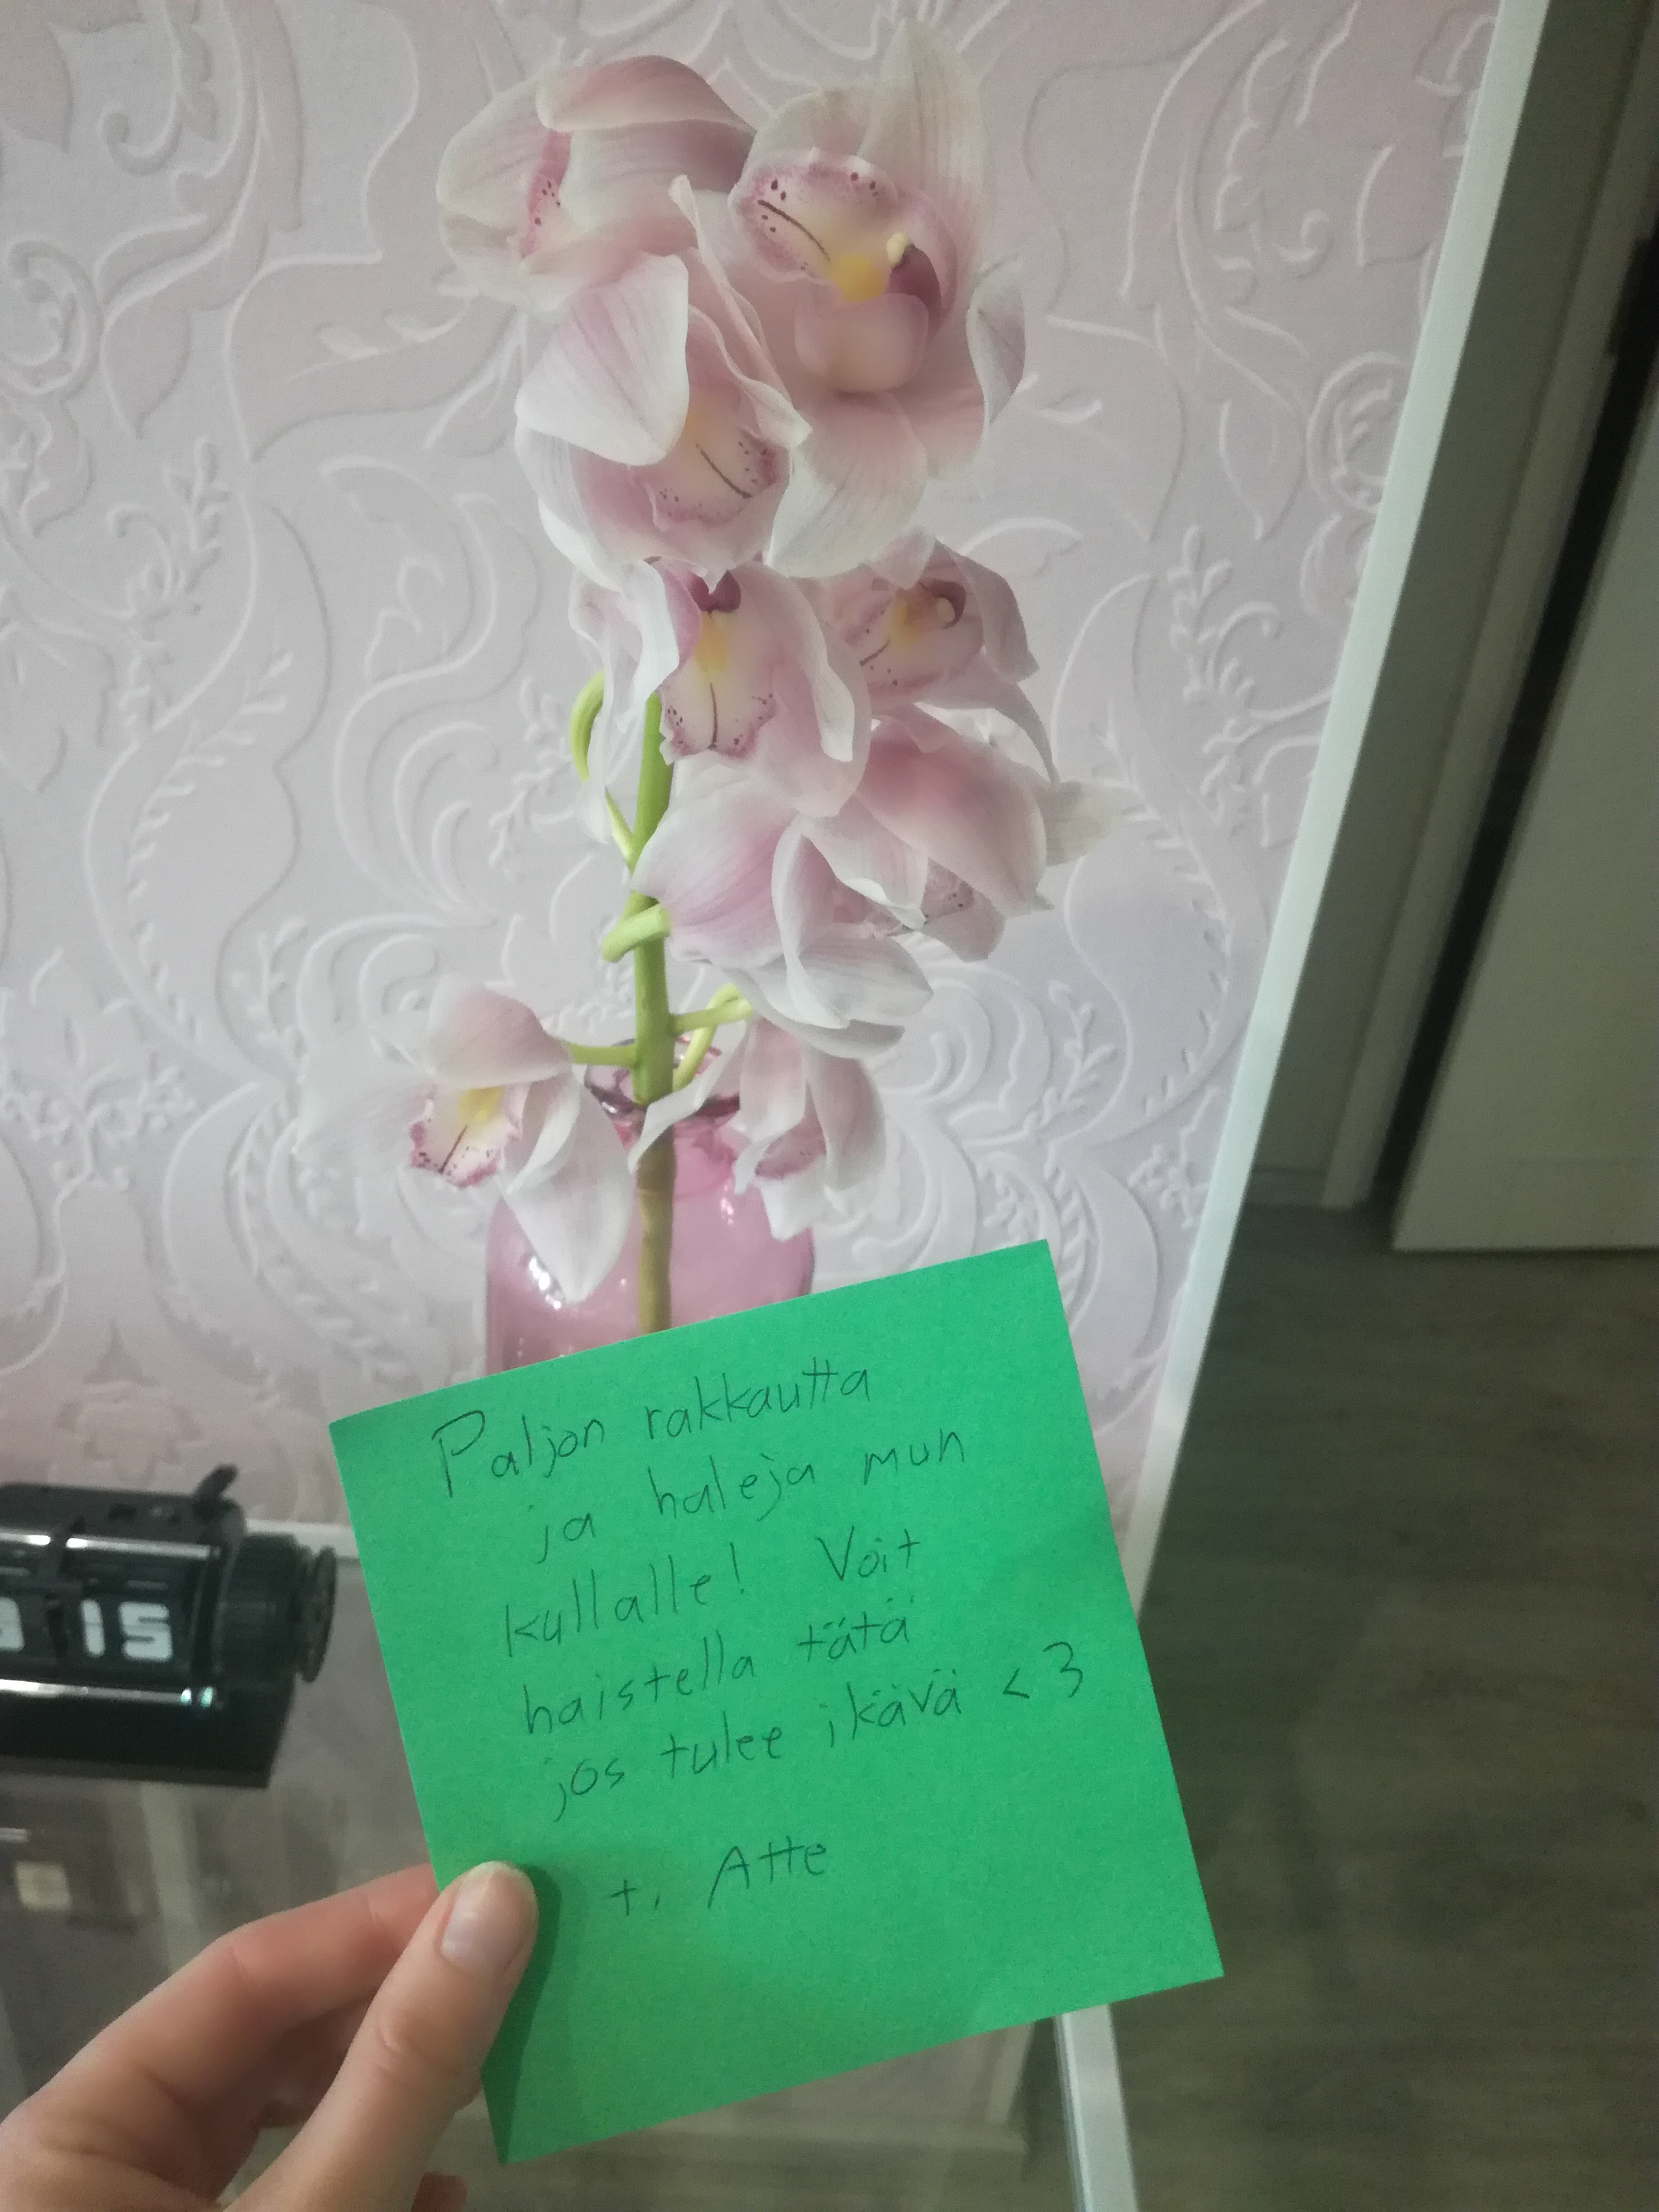 Paljon rakkautta
ja haleja mun
kullalle! Voit
haistella tätä
jos tulee ikävä <3
t. Atte
15